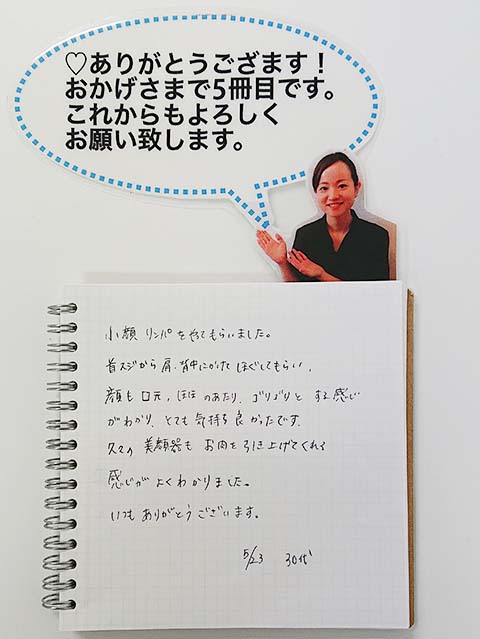 ♡ありがとうござます！
おかげさまで5冊目です。
これからもよろしく
お願い致します。
小顔リンパをやってもらいました。
首スジから肩、背中にかけてほぐしてもらい、
顔も口元、ほほのあたり、ゴリゴリとする感じ
がわかり、とても気持ち良かったです。
久々の美顔器もお肉を引き上げてくれる
感じがよくわかりました。
いつもありがとうございます。
5/23 30代